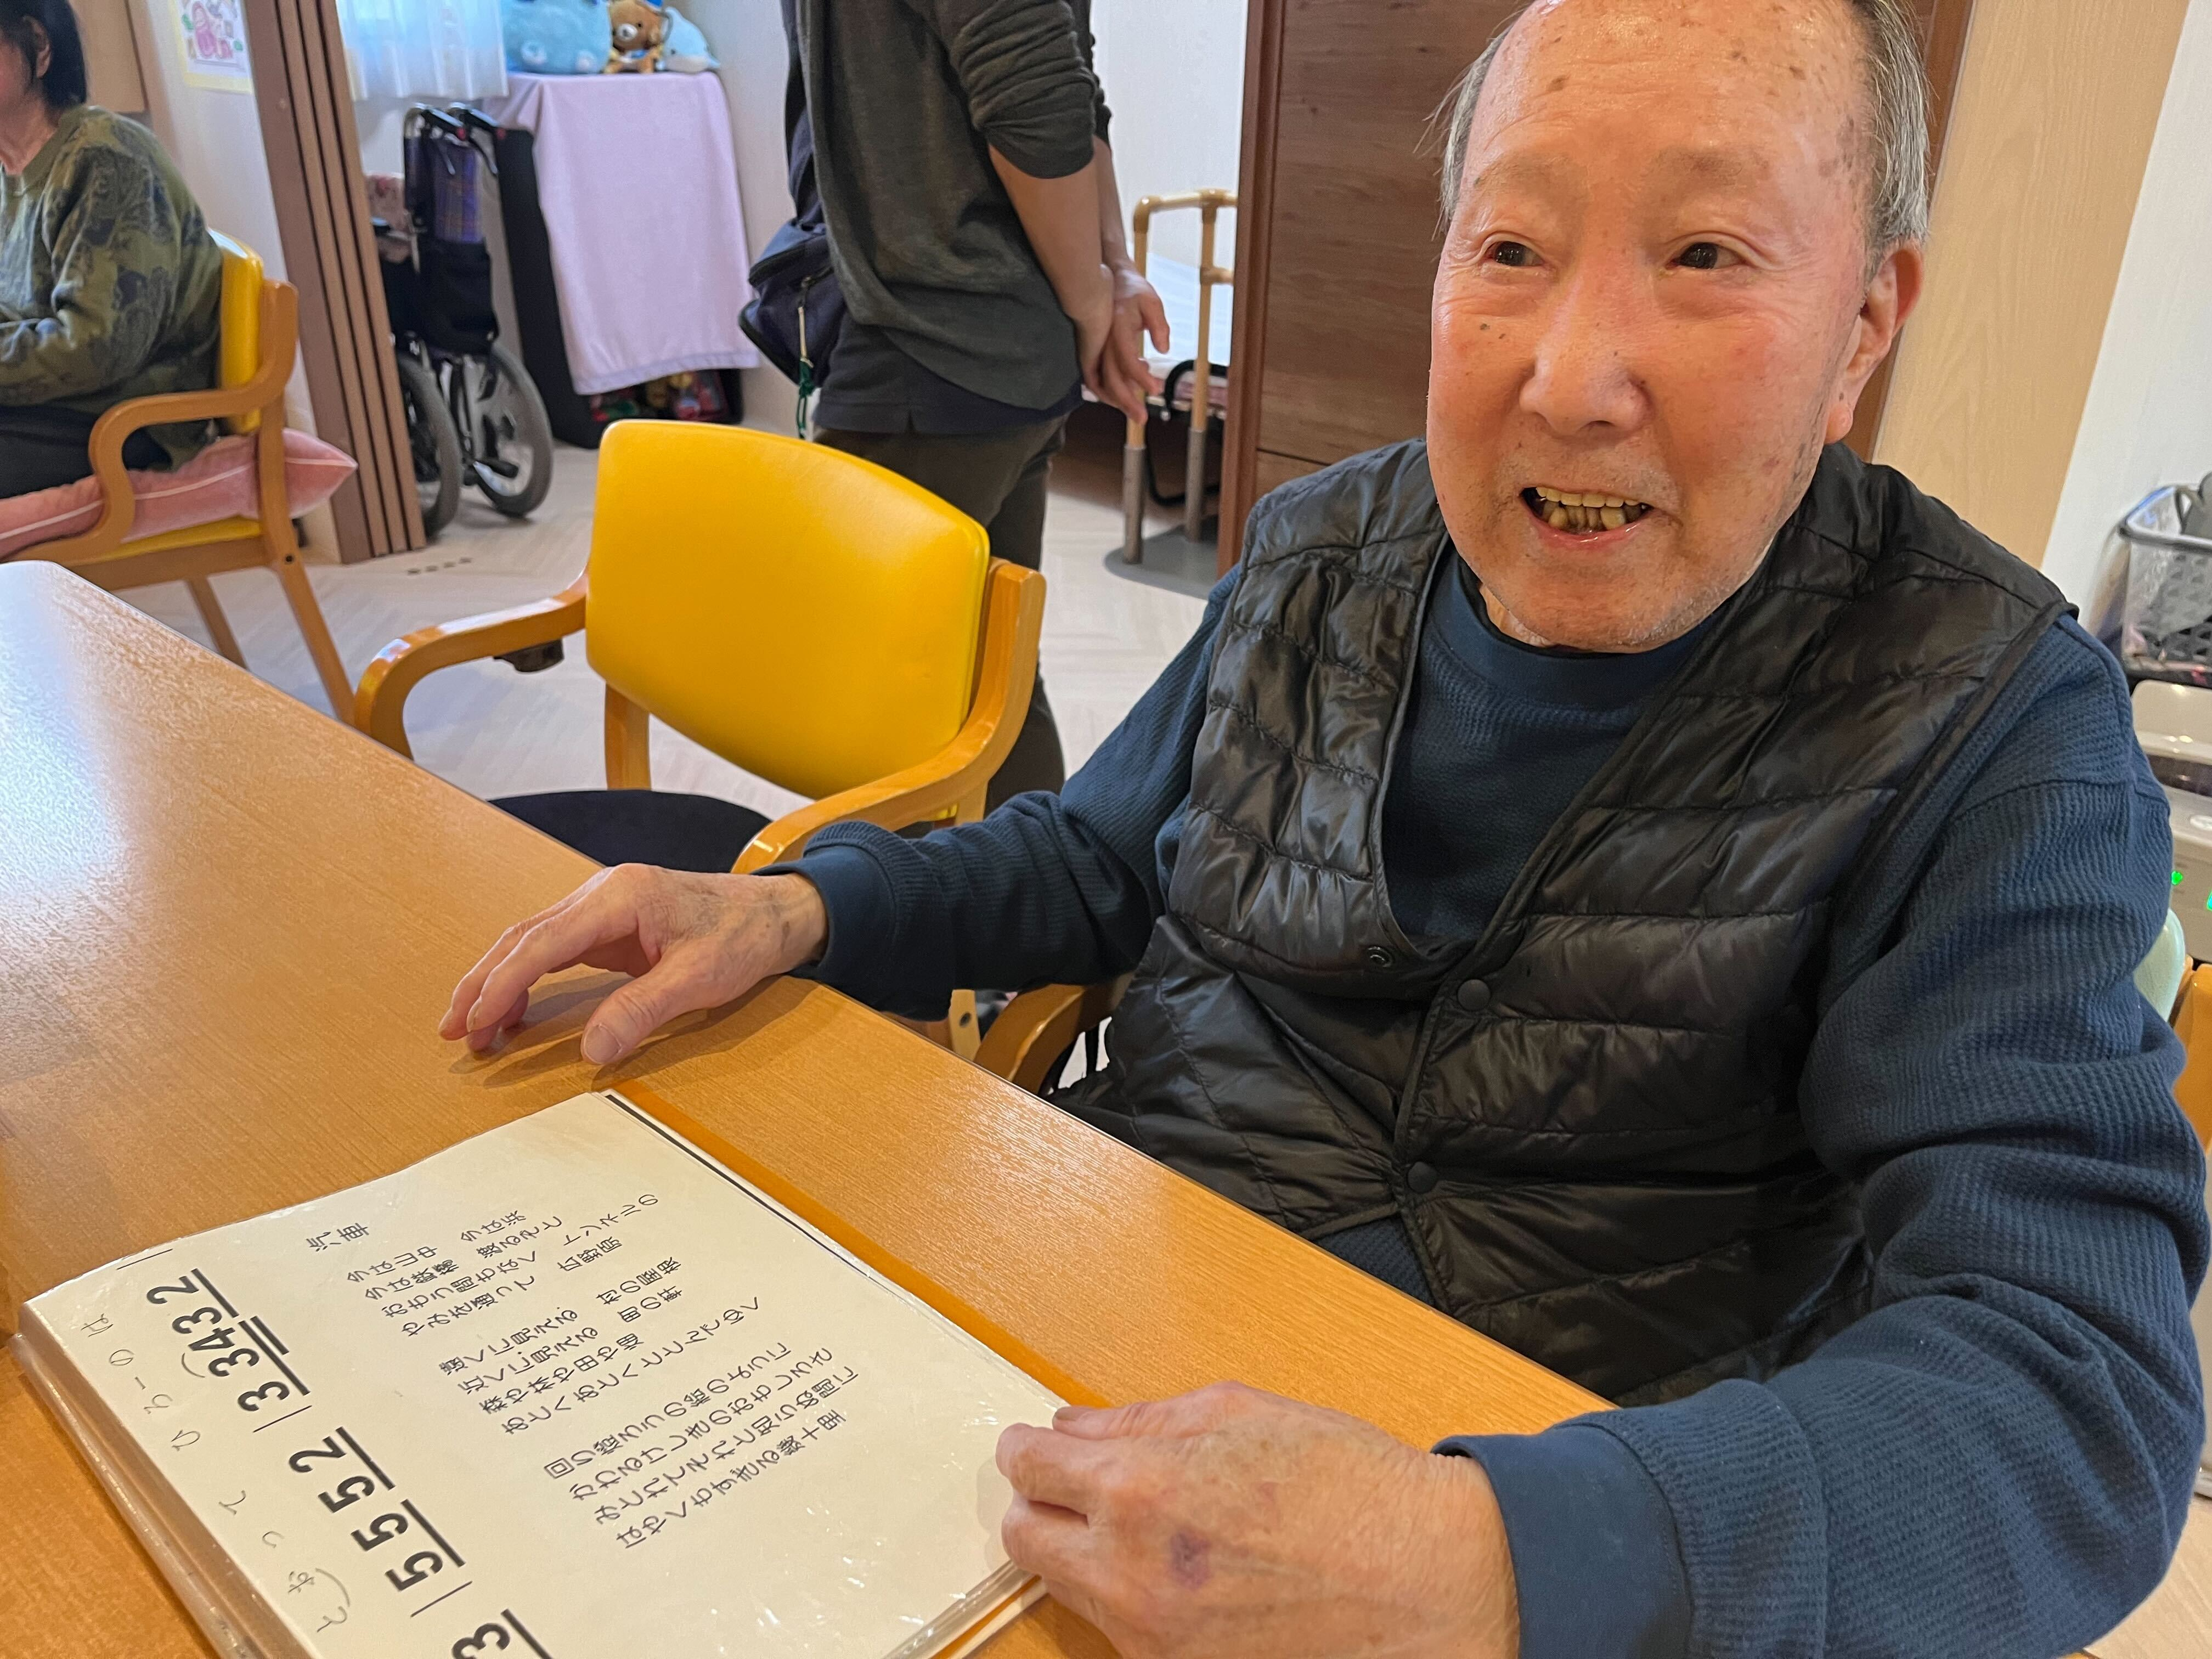 汽車
今は山中 今は浜
今は鉄橋 渡るぞと
おもう間もなく トンネルの
やみを通って 広野原
遠くに見える 村の屋根
近くに見える 町の軒
森や林や田や畑
あとへあとへととんでゆく
回り燈ろうの絵のように
かわるけしきのおもしろさ
みとれてそれと知らぬ間に
はやくもすぎる幾十里
3 | 5 5 5 2 | 3 3 4 3 2
と お っ て ひ ろ ー の は